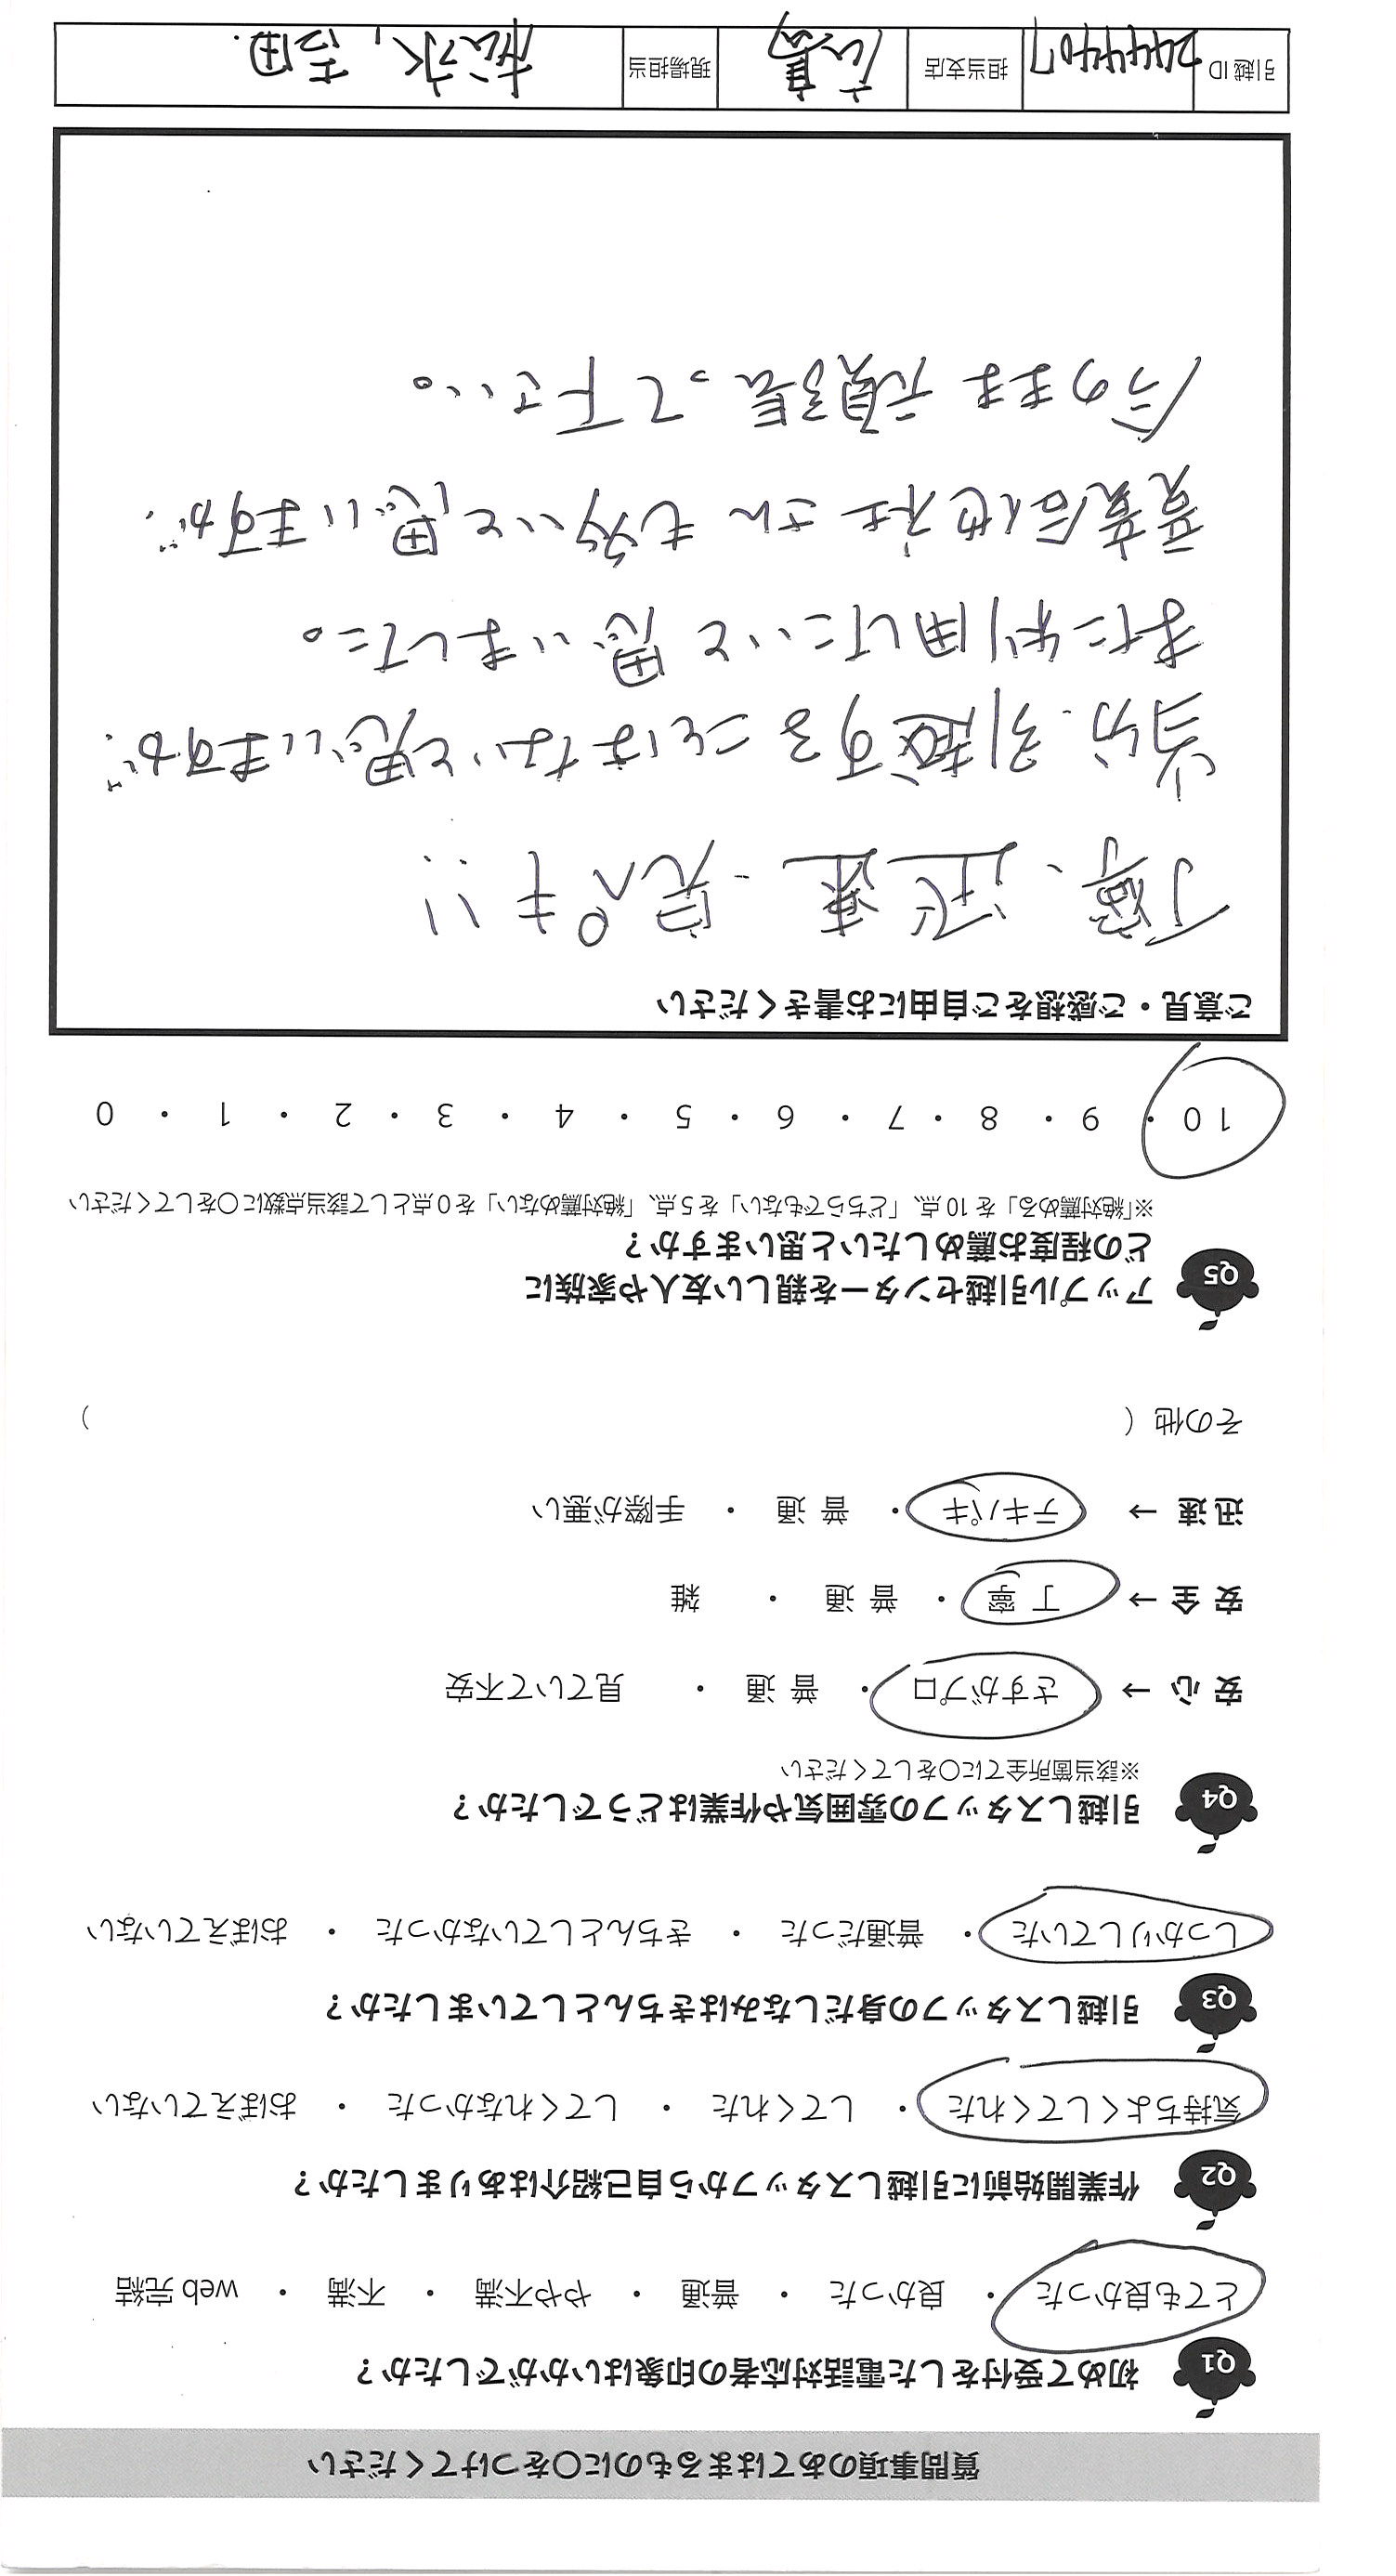 質問事項のあてはまるものに〇をつけてください
Q1 初めて受付をした電話対応者の印象はいかがでしたか?
とても良かった ・ 良かった ・ 普通 ・ やや不満 ・ 不満 ・ web 完結
Q2 作業開始前に引越しスタッフから自己紹介はありましたか?
気持ちよくしてくれた ・ してくれた ・ してくれなかった ・ おぼえていない
Q3 引越しスタッフの身だしなみはきちんとしていましたか?
しっかりしていた ・ 普通だった ・ きちんとしていなかった ・ おぼえていない
Q4 引越しスタッフの雰囲気や作業はどうでしたか?
※該当箇所全てに〇をしてください
安心 → さすがプロ ・ 普通 ・ 見ていて不安
安全 → 丁寧 ・ 普通 ・ 雑
迅速 → テキパキ ・ 普通 ・ 手際が悪い
その他 ( )
Q5 アップル引越センターを親しい友人や家族に
どの程度お薦めしたいと思いますか?
※「絶対薦める」を 10 点、「どちらでもない」を 5 点、「絶対薦めない」を 0 点として該当点数に〇をしてください
10 ・ 9 ・ 8 ・ 7 ・ 6 ・ 5 ・ 4 ・ 3 ・ 2 ・ 1 ・ 0
ご意見・ご感想をご自由にお書きください
丁寧、迅速、完ペキ!!
当分、引越することはないと思いますが、
また利用したいと思いました。
競合他社さんも多いと思いますが、
今のまま頑張って下さい。
引越 ID 2444407 担当支店 広島 現場担当 松永, 吉田.